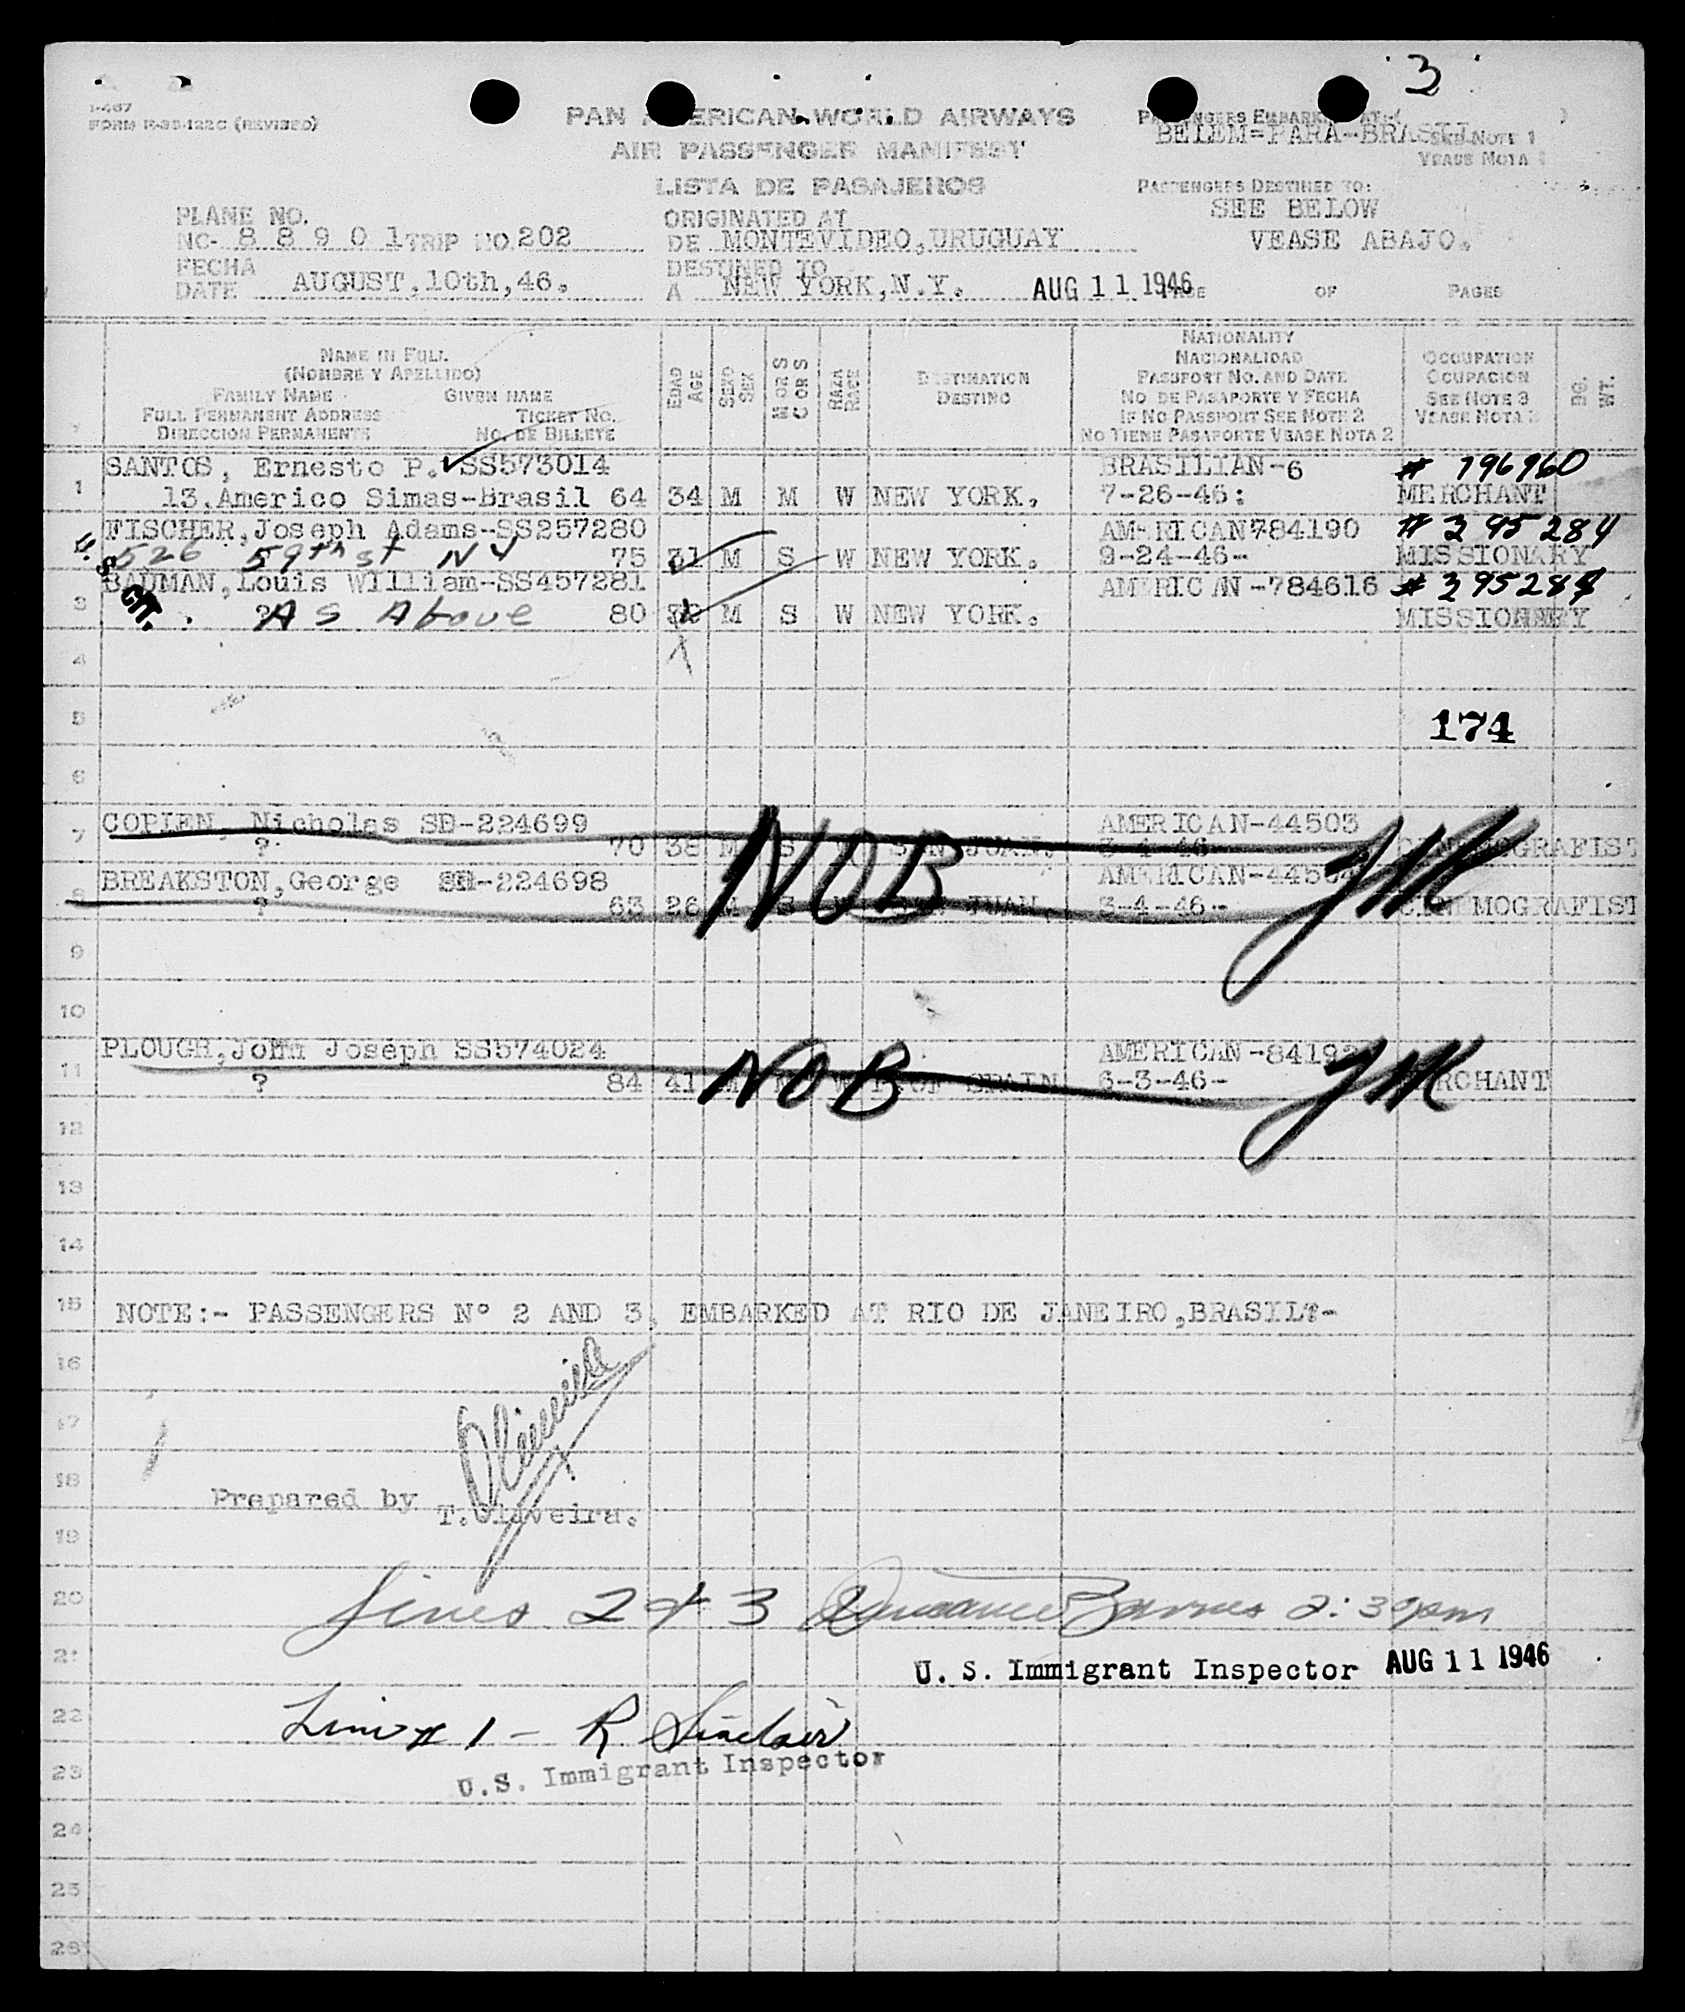 3
I-467
FORM R-35-122C (REVISED)
PAN AMERICAN WORLD AIRWAYS
AIR PASSENGER MANIFEST
LISTA DE PASAJEROS
PASSENGERS EMBARKED AT:
BELEM=PARA-BRASIL
SEE NOTE 1
VEASE NOTA 1
PASSENGERS DESTINED TO:
SEE BELOW
VEASE ABAJO.
PLANE NO.
NC- 8 8 9 0 1 TRIP NO. 202
FECHA
DATE AUGUST,10th,46.
ORIGINATED AT
DE MONTEVIDEO,URUGUAY
DESTINED TO
A NEW YORK,N.Y.
AUG 11 1946
PAGE OF PAGES
NAME IN FULL
(NOMBRE Y APELLIDO)
FAMILY NAME GIVEN NAME
FULL PERMANENT ADDRESS TICKET NO.
DIRECCION PERMANENTE NO. DE BILLETE
EDAD AGE
SEXO SEX
M OR S C OR S
RAZA RACE
DESTINATION
DESTINO
NATIONALITY
NACIONALIDAD
PASSPORT NO. AND DATE
NO DE PASAPORTE Y FECHA
IF NO PASSPORT SEE NOTE 2
NO TIENE PASAPORTE VEASE NOTA 2
OCCUPATION
OCUPACION
SEE NOTE 3
VEASE NOTA 3
BG. WT.
SANTOS, Ernesto P. SS573014 BRASILIAN-6 # 796960
1 13.Americo Simas-Brasil 64 34 M M W NEW YORK. 7-26-46: MERCHANT
FISCHER,Joseph Adams-SS257280 AMERICAN784190 # 395284
U.S. CIT.
526 59th st N Y 75 31 M S W NEW YORK. 9-24-46- MISSIONARY
BAUMAN,Louis William-SS457281 AMERICAN-784616 # 395284
3 ? As Above 80 M S W NEW YORK. MISSIONARY
4
5 174
6
COPIEN, Nicholas SD-224699 AMERICAN-44503
7 ? 70 38 M S W SAN JUAN. 3-4-46- CINEMOGRAFIST
NOB JMK
BREAKSTON,George SD-224698 AMERICAN-44504
8 ? 63 26 M S W SAN JUAN. 3-4-46- CINEMOGRAFIST
9
10
PLOUGH,John Joseph SS574024 AMERICAN-84192
11 ? 84 41 M M W P.OF SPAIN 6-3-46- MERCHANT
NOB JMK
12
13
14
15 NOTE:- PASSENGERS Nº 2 AND 3, EMBARKED AT RIO DE JANEIRO,BRASIL:-
16
17
18
Prepared by T.Oliveira.
19
20 Lines 2 & 3 Barnes 2:30pm
21 U. S. Immigrant Inspector AUG 11 1946
22 Line # 1 - R Sinclair
23 U.S. Immigrant Inspector
24
25
26